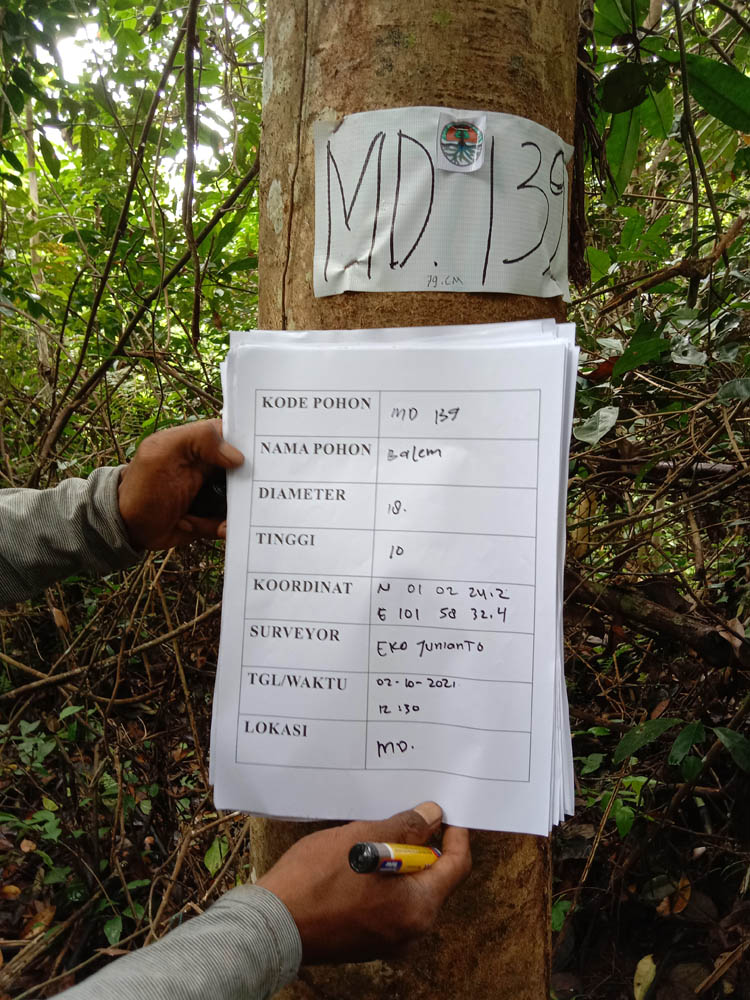 MD. 139
79.CM
KODE POHON MD 139
NAMA POHON Balem
DIAMETER 18.
TINGGI 10
KOORDINAT N 01 02 24.2
E 101 58 32.4
SURVEYOR EKO JUNIANTO
TGL/WAKTU 02-10-2021
12:30
LOKASI MD.